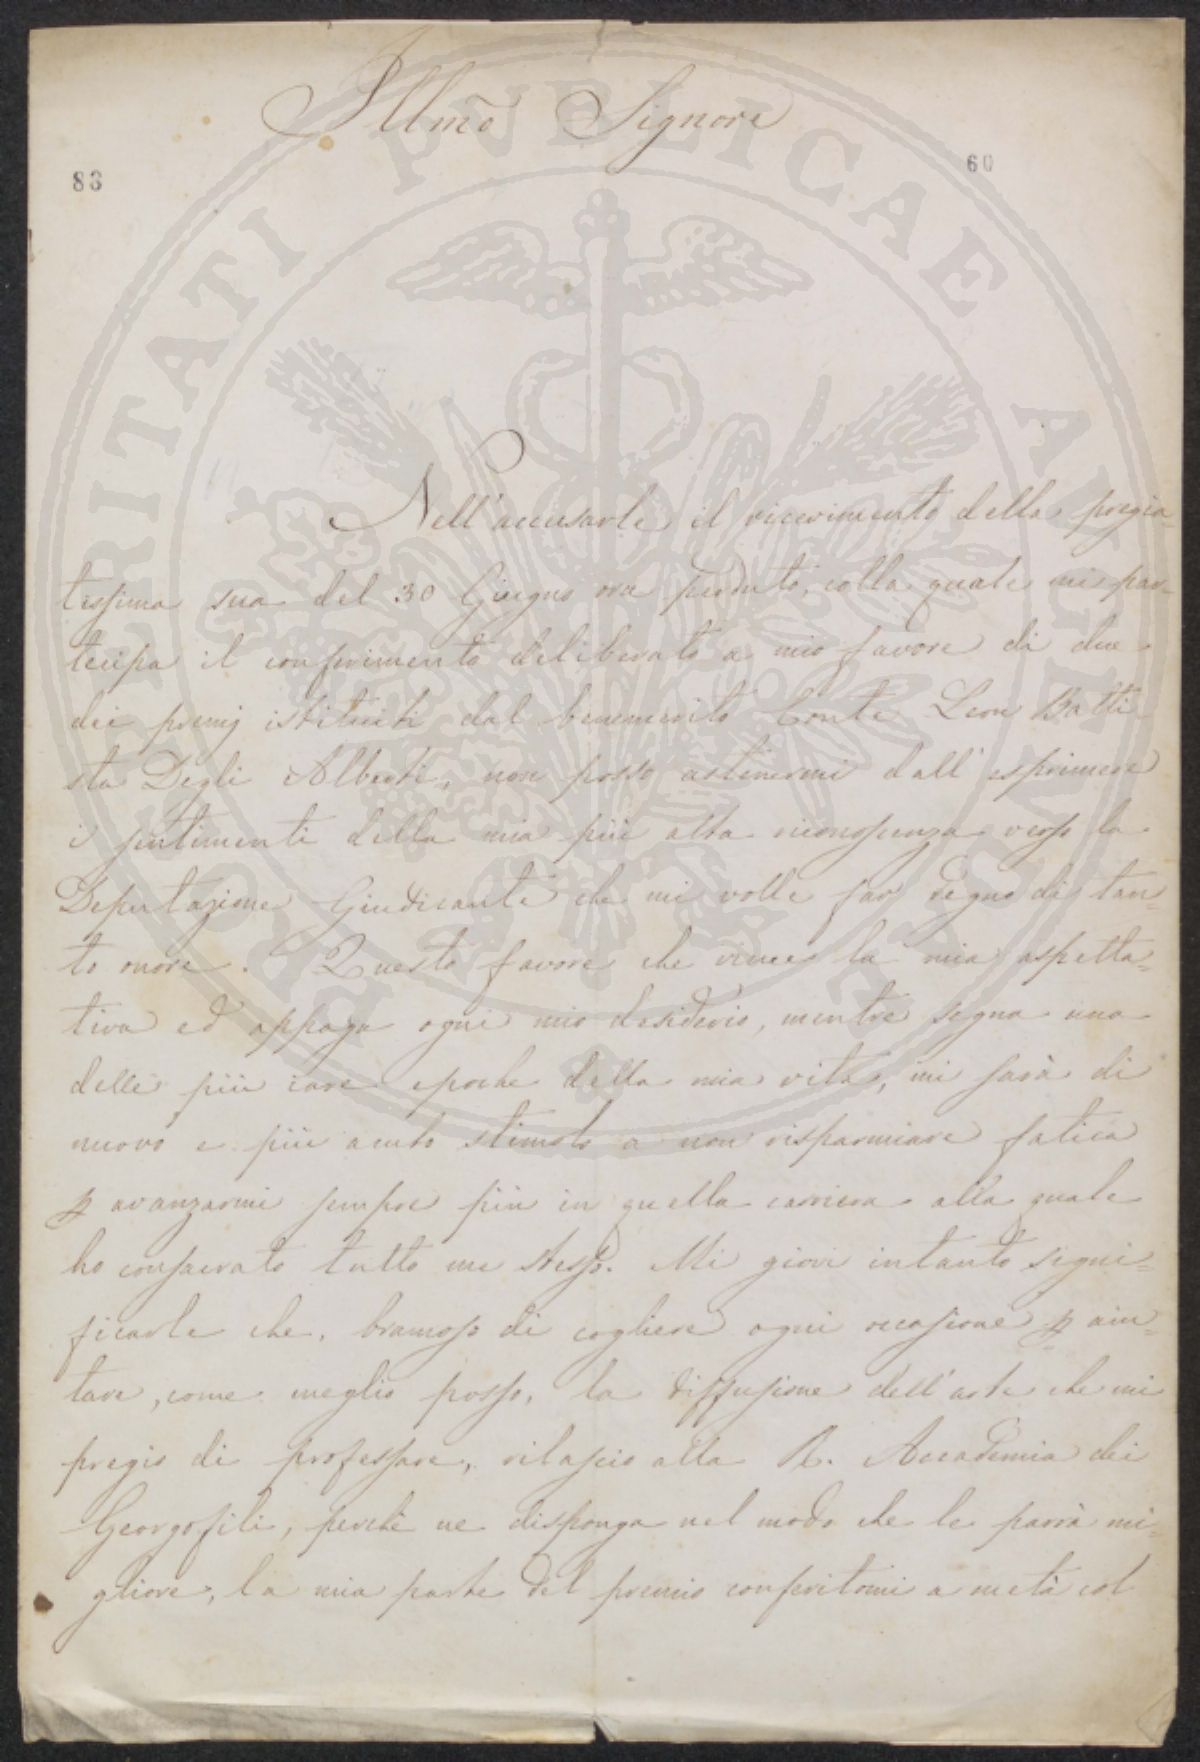 Illmõ Signore
83
60
Nell'accusarle il ricevimento della pregia-
tissima sua del 30 Giugno ora perduto, colla quale mi par-
tecipa il conferimento deliberato a mio favore di due
dei premj istituiti dal benemerito Conte Leon Batti-
sta Degli Alberti, non posso astenermi dall'esprimere
i sentimenti della mia più alta riconoscenza verso la
Deputazione Giudicante che mi volle far degno di tan=
to onore. Questo favore che vince la mia aspetta=
tiva ed appaga ogni mio desiderio, mentre segna una
delle più care epoche della mia vita, mi sarà di
nuovo e più acuto stimolo a non risparmiare fatica
p avanzarmi sempre più in quella carriera alla quale
ho consacrato tutto me stesso. Mi giovi intanto signi=
ficarle che, bramoso di cogliere ogni occasione p aiu=
tare, come meglio posso, la diffusione dell'arte che mi
pregio di professare, rilascio alla R. Accademia dei
Georgofili, perchè ne disponga nel modo che le parrà mi=
gliore, la mia parte del premio conferitomi a metà col
PROSPERITATI PVBLICAE AVGENDAE